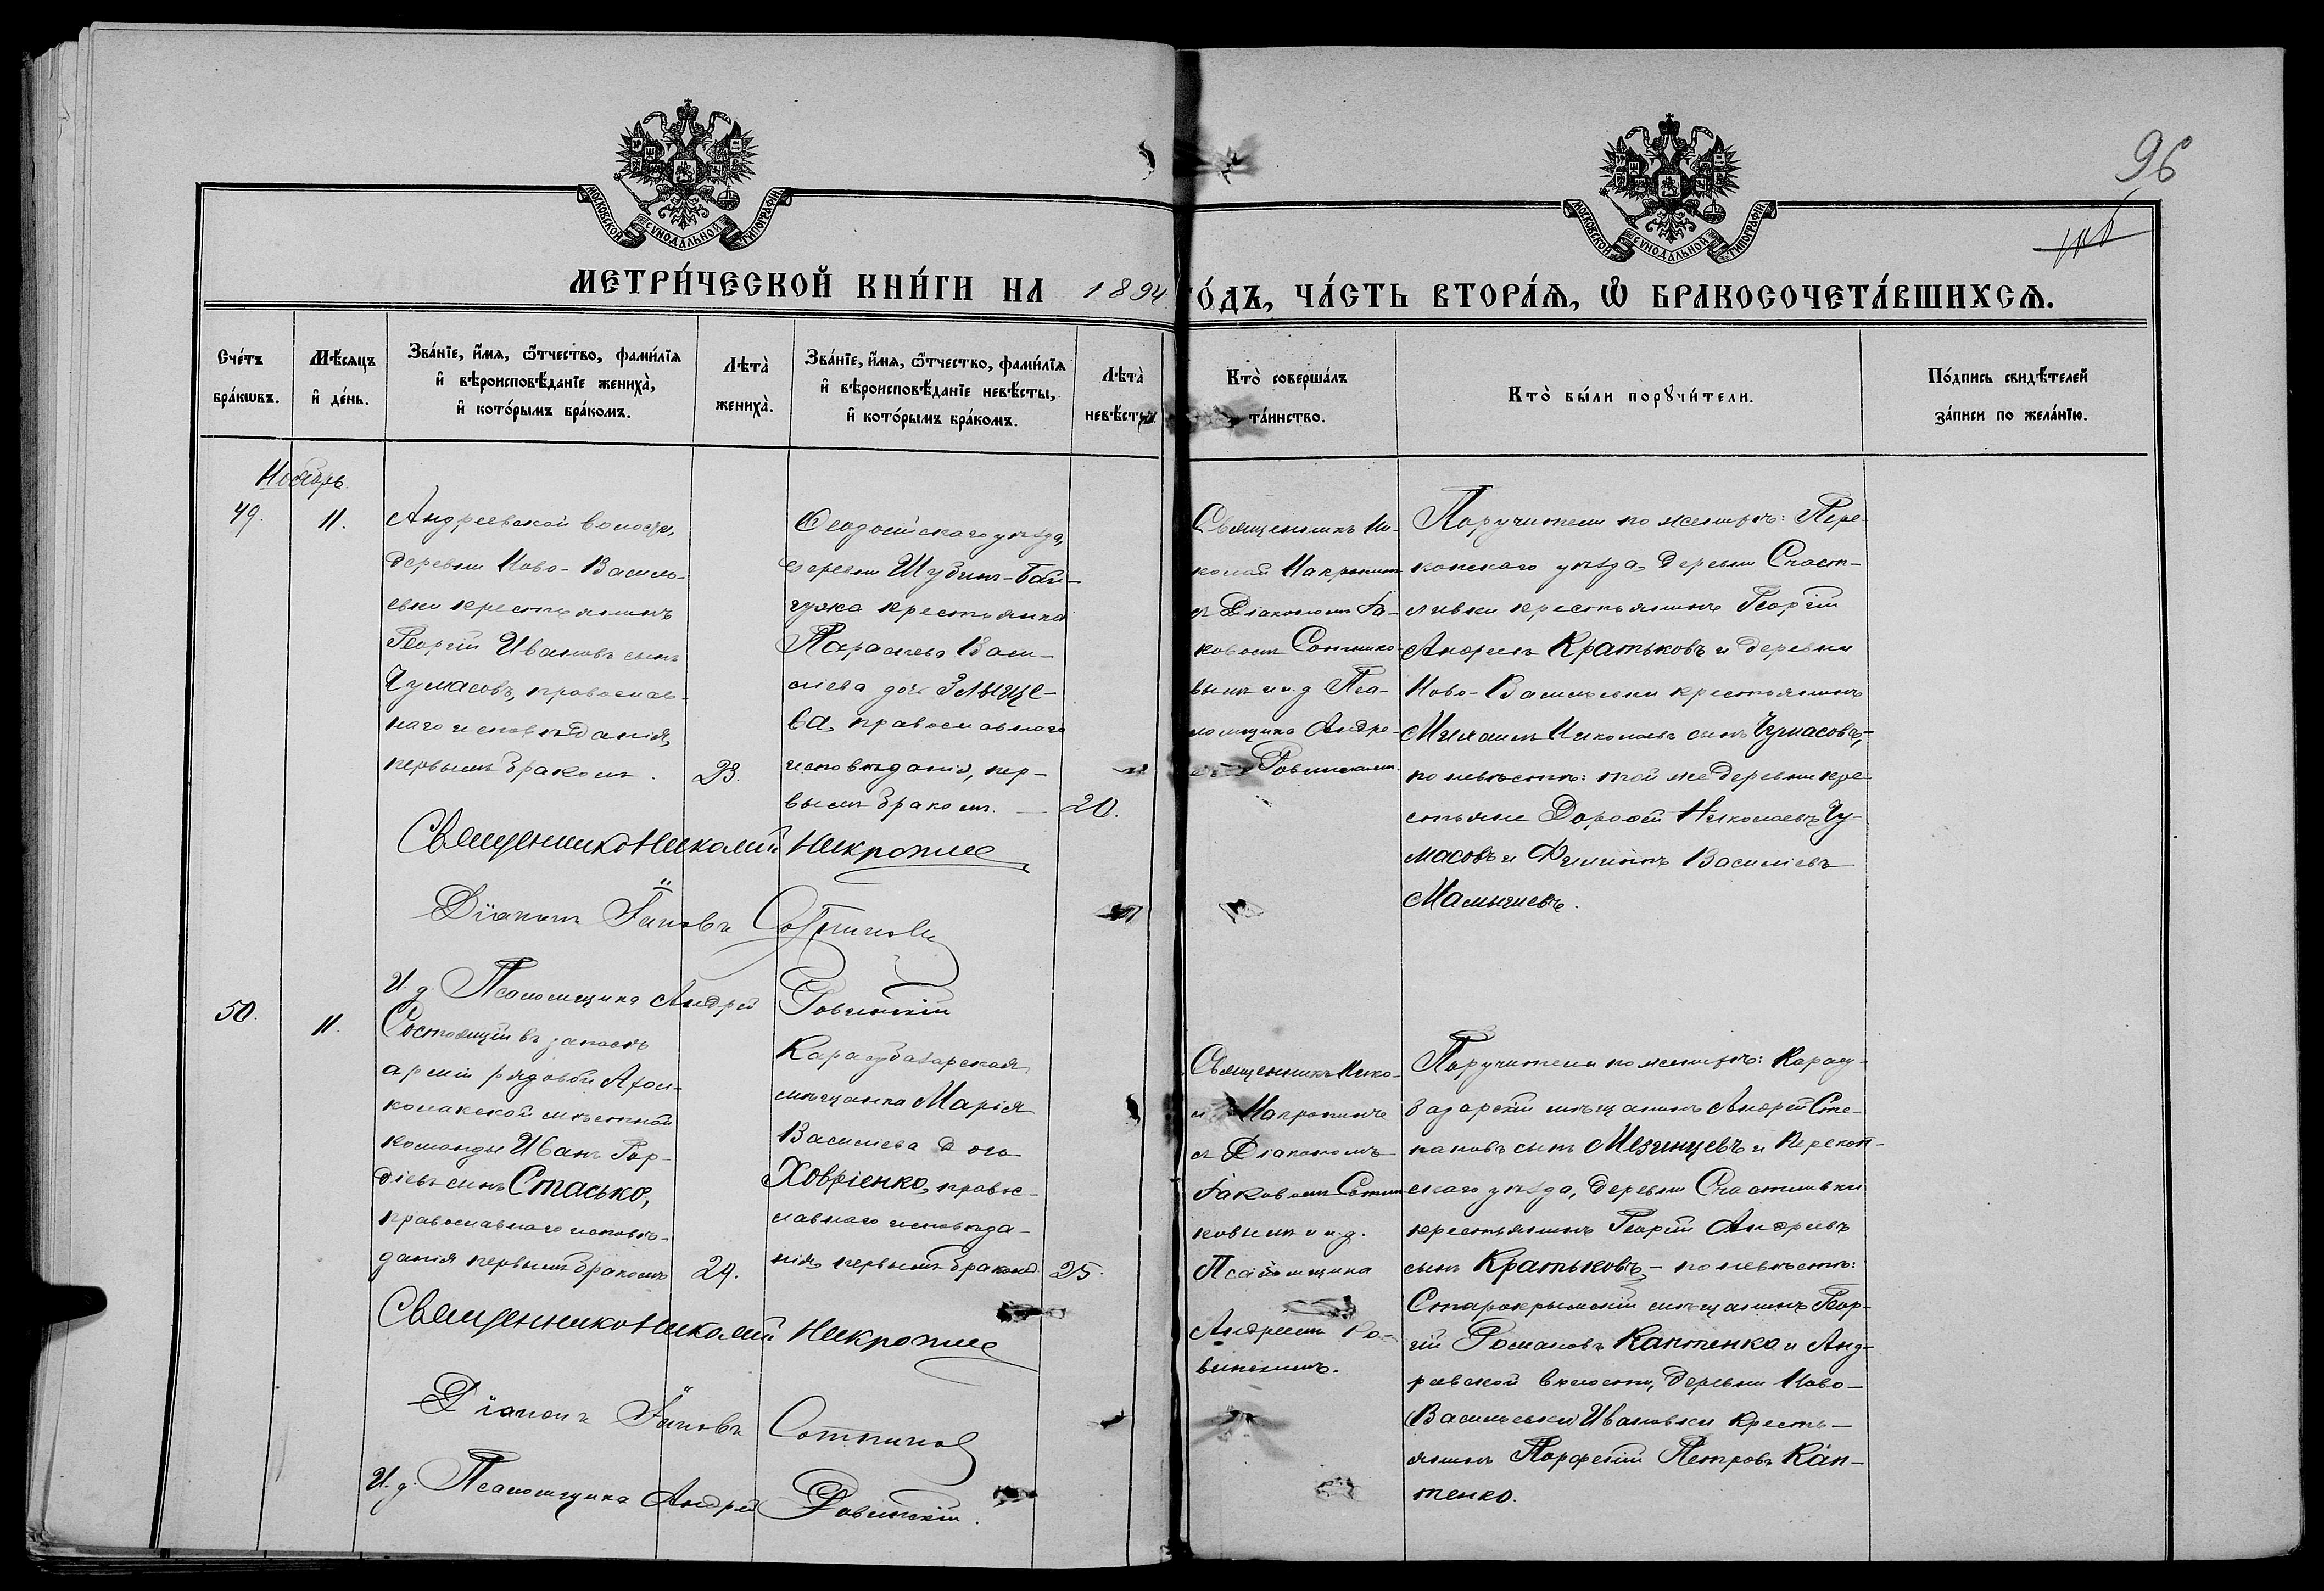 96
МОСКОВСКОЙ СѴНОДАЛЬНОЙ ТИПОГРАФІИ
МОСКОВСКОЙ СѴНОДАЛЬНОЙ ТИПОГРАФІИ
МЕТРИ́ЧЕСКОЙ КНИ́ГИ НА 1894 ГО́ДЪ, ЧА́СТЬ ВТОРА́Ѧ, Ѽ БРАКОСОЧЕТА́ВШИХСѦ.
Сче́тъ
бра́кѡвъ.
Мѣ́сяцъ
и҆ де́нь.
Зва́нїе, и҆́мѧ, ѻ҆́тчество, фами́лїѧ
и҆ вѣроисповѣ́данїе жениха̀,
и҆ кото́рымъ бра́комъ.
Лѣта̀
жениха̀.
Зва́нїе, и҆́мѧ, ѻ҆́тчество, фами́лїѧ
и҆ вѣроисповѣ́данїе невѣ́сты,
и҆ кото́рымъ бра́комъ.
Лѣта̀
невѣ́сты.
Кто̀ соверша́лъ
та́инство.
Кто̀ бы́ли порꙋчи́тели.
По́дпись свидѣ́телей
за́писи по жела́нїю.
Ноябрь.
49.
11.
Андреевской волости,
деревни Ново-Василь-
евки крестьянинъ
Георгій Ивановъ сынъ
Чумасовъ, православ-
наго исповѣданія,
первымъ бракомъ.
23.
Ѳеодосійскаго уѣзда,
деревни Шубинъ-Бай-
гужа крестьянка
Параскева Васи-
ліева дочь
ва, православнаго
исповѣданія, пер-
вымъ бракомъ. —
20.
Священникъ Ни-
колай Макропино
съ Діакономъ Іа-
ковомъ Сотнико-
вымъ и и.д. Пса-
ломщика Андре-
Ровинскимъ.
Поручители по женихѣ: Пере-
копскаго уѣзда, деревни Счаст-
ливки крестьянинъ Георгій
Андреевъ Кратьковъ и деревни
Ново-Васильевки крестьянинъ
Михаилъ Николаевъ сынъ Чумасовъ,-
по невѣстѣ: той же деревни кре-
стьяне Дороѳей Николаевъ Чу-
масовъ и Филиппъ Василіевъ
Мамычевъ.
Священникъ Николай
Діаконъ Іаковъ Сотников
И. д. Псаломщика Андрей Ровинскій
50.
11.
Состоящій въ запасѣ
арміи рядовой
мѣстной
команды Иванъ Гор-
діевъ сынъ Стасько,
православнаго исповѣ-
данія первымъ бракомъ
29.
Карасубазарская
мѣщанка Марія
Василіева дочь
Ховріенко, правос-
лавнаго исповѣда-
нія, первымъ бракомъ.
25.
Священникъ Нико-
съ Діакономъ
Іаковомъ Сотни
ковымъ и и.д.
Псаломщика
Андреемъ Ро-
винскимъ.
Поручители по женихѣ: Карасу-
базарскій мѣщанинъ Андрей Сте-
пановъ сынъ Мезинцевъ и Перекоп-
скаго уѣзда, деревни Счастливки
крестьянинъ Георгій Андреевъ
сынъ Кратьковъ,- по невѣстѣ:
Старокрымскій мѣщанинъ Геор-
гій Романовъ Каптенко и Анд-
реевской волости, деревни Ново-
(Васильевки) Ивановки кресть-
янинъ Парфеній Петровъ Кап-
тенко.
Священникъ Николай
Діаконъ Іаковъ Сотников
И. д. Псаломщика Андрей Ровинскій.